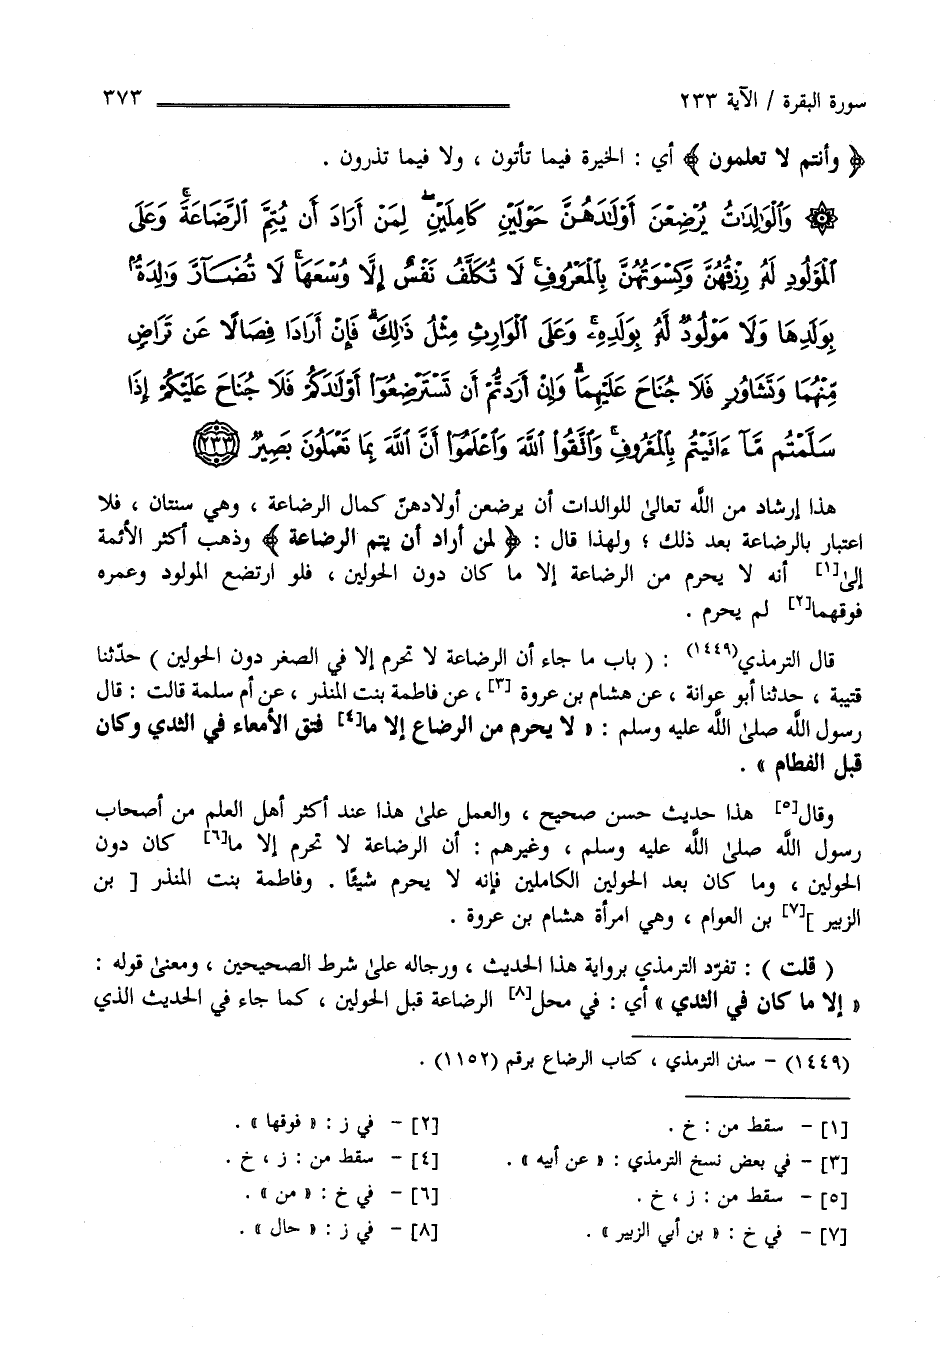 سورة البقرة / الآية ٢٣٣ ٣٧٣
﴿ وأنتم لا تعلمون ﴾ أي : الخيرة فيما تأتون ، ولا فيما تذرون .
۞ وَٱلْوَٰلِدَٰتُ يُرْضِعْنَ أَوْلَٰدَهُنَّ حَوْلَيْنِ كَامِلَيْنِ ۖ لِمَنْ أَرَادَ أَن يُتِمَّ ٱلرَّضَاعَةَ ۚ وَعَلَى
ٱلْمَوْلُودِ لَهُۥ رِزْقُهُنَّ وَكِسْوَتُهُنَّ بِٱلْمَعْرُوفِ ۚ لَا تُكَلَّفُ نَفْسٌ إِلَّا وُسْعَهَا ۚ لَا تُضَآرَّ وَٰلِدَةٌۢ
بِوَلَدِهَا وَلَا مَوْلُودٌ لَّهُۥ بِوَلَدِهِۦ ۚ وَعَلَى ٱلْوَارِثِ مِثْلُ ذَٰلِكَ ۗ فَإِنْ أَرَادَا فِصَالًا عَن تَرَاضٍ
مِّنْهُمَا وَتَشَاوُرٍ فَلَا جُنَاحَ عَلَيْهِمَا ۗ وَإِنْ أَرَدتُّمْ أَن تَسْتَرْضِعُوٓا۟ أَوْلَٰدَكُمْ فَلَا جُنَاحَ عَلَيْكُمْ إِذَا
سَلَّمْتُم مَّآ ءَاتَيْتُم بِٱلْمَعْرُوفِ ۗ وَٱتَّقُوا۟ ٱللَّهَ وَٱعْلَمُوٓا۟ أَنَّ ٱللَّهَ بِمَا تَعْمَلُونَ بَصِيرٌ ۝٢٣٣
هذا إرشاد من اللَّه تعالىٰ للوالدات أن يرضعن أولادهنّ كمال الرضاعة ، وهي سنتان ، فلا
اعتبار بالرضاعة بعد ذلك ؛ ولهذا قال : ﴿ لمن أراد أن يتم الرضاعة ﴾ وذهب أكثر الأئمة
إلىٰ[١] أنه لا يحرم من الرضاعة إلا ما كان دون الحولين ، فلو ارتضع المولود وعمره
فوقهما[٢] لم يحرم .
قال الترمذي(١٤٤٩) : ( باب ما جاء أن الرضاعة لا تحرم إلا في الصغر دون الحولين ) حدّثنا
قتيبة ، حدثنا أبو عوانة ، عن هشام بن عروة [٣]، عن فاطمة بنت المنذر ، عن أم سلمة قالت : قال
رسول اللَّه صلىٰ اللَّه عليه وسلم : « لا يحرم من الرضاع إلا ما[٤] فتق الأمعاء في الثدي وكان
قبل الفطام » .
وقال[٥] هذا حديث حسن صحيح ، والعمل علىٰ هذا عند أكثر أهل العلم من أصحاب
رسول اللَّه صلىٰ اللَّه عليه وسلم ، وغيرهم : أن الرضاعة لا تحرم إلا ما[٦] كان دون
الحولين ، وما كان بعد الحولين الكاملين فإنه لا يحرم شيئًا . وفاطمة بنت المنذر [ بن
الزبير ][٧] بن العوام ، وهي امرأة هشام بن عروة .
( قلت ) : تفرّد الترمذي برواية هذا الحديث ، ورجاله علىٰ شرط الصحيحين ، ومعنىٰ قوله :
« إلا ما كان في الثدي » أي : في محل[٨] الرضاعة قبل الحولين ، كما جاء في الحديث الذي
(١٤٤٩) – سنن الترمذي ، كتاب الرضاع برقم (١١٥٢) .
[١] – سقط من : خ . [٢] – في ز : « فوقها » .
[٣] – في بعض نسخ الترمذي : « عن أبيه » . [٤] – سقط من : ز ، خ .
[٥] – سقط من : ز ، خ . [٦] – في خ : « من » .
[٧] – في خ : « بن أبي الزبير » . [٨] – في ز : « حال » .